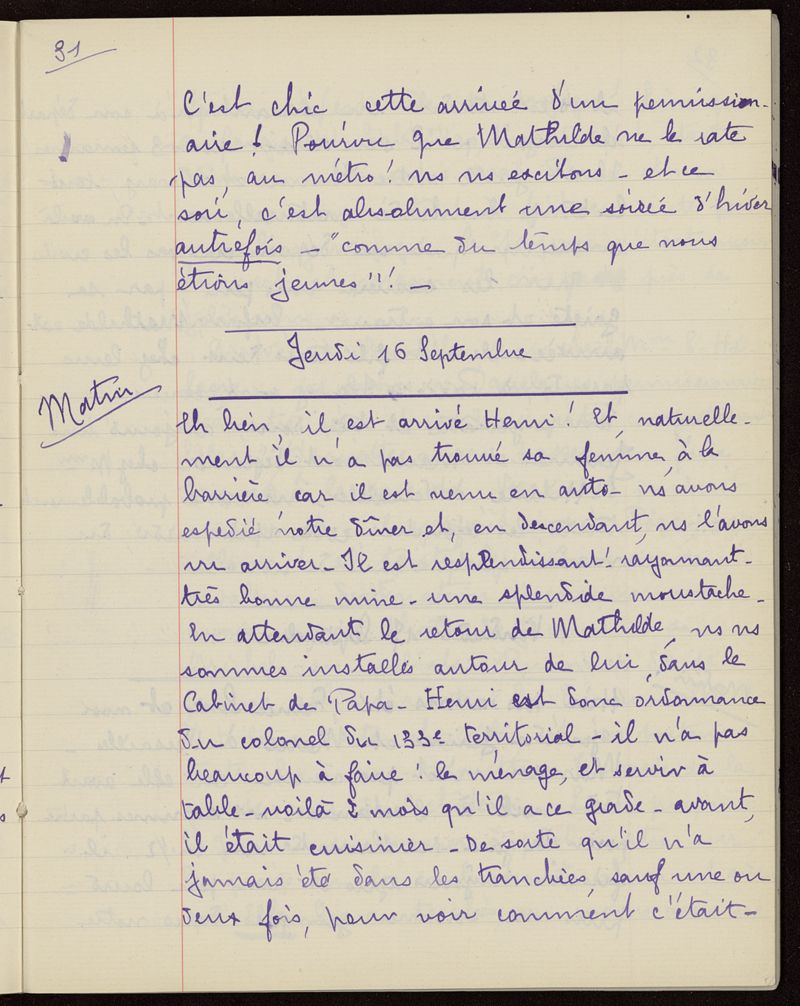 91
C'est chic cette arrivée d'un permission-
aire ! Pourvu que Mathilde ne le rate
pas, au métro ! ns ns excitons - et ce
soir, c'est absolument une soirée d'hiver
autrefois - "comme du temps que nous
étions jeunes"!! -
Jeudi 16 Septembre
Matin
Eh bien, il est arrivé Henri ! Et, naturelle-
ment il n'a pas trouvé sa femme à la
barrière car il est venu en auto - ns avons
expedié notre dîner et, en descendant, ns l'avons
vu arriver - Il est resplendissant ! rayonnant -
très bonne mine - une splendide moustache -
En attendant le retour de Mathilde, ns ns
sommes installés autour de lui, dans le
Cabinet de Papa - Henri est donc ordonnance
du colonel du 133e territorial - il n'a pas
beaucoup à faire : le ménage, et servir à
table - voilà 2 mois qu'il a ce grade - avant,
il était cuisinier - De sorte qu'il n'a
jamais été dans les tranchées, sauf une ou
deux fois, pour voir comment c'était -